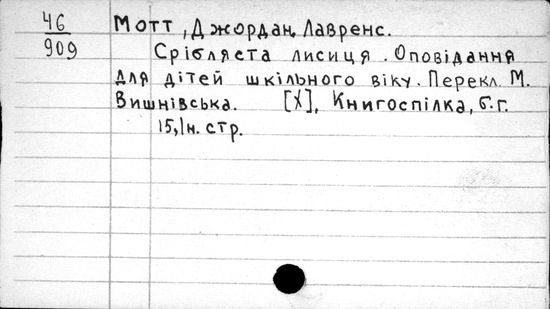 46
909
Мотт, Джордан Лавренс.
Срібляста лисиця. Оповідання
для дітей шкільного віку. Перекл. М.
Вишнівська. [Х], Книгоспілка, б.г.
15,1н. стр.